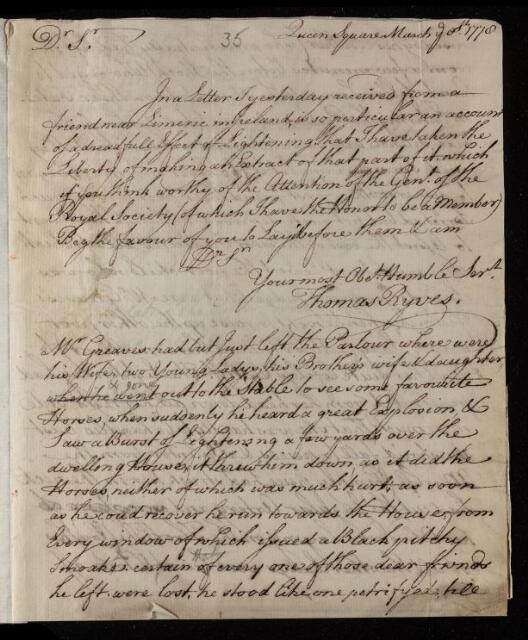 Dr Sr 35 Queen Square March ye 8th 1778
In a Letter I yesterday received from a
friend near Limeric in Ireland, is so particular an account
of a dreadfull Effect of Lightening that I have taken the
Liberty of making an Extract of that part of it which
if you think worthy of the Attention of the Gent. of the
Royal Society (of which I have the Honor to be a Member)
Beg the favour of you to Lay it before them & am
Dr Sr
Your most Obt Humble Servt
Thomas Ryves.
Mr Greaves had but Just left the Parlour where were
his Wife, two Young Ladys, his Brothers wife & daughter
& gone
when he went out to the Stable to see some favourite
Horses, when suddenly he heard a great Explosion, &
Saw a Burst of Lightening a few yards over the
dwelling House, it threw him down as it did the
Horses, neither of which was much hurt; as soon
as he coud recover he run towards the House, from
Every window of which issued a Black pitchy
Smoake certain of every one of those dear friends
he left were lost, he stood like one petrifyed, till